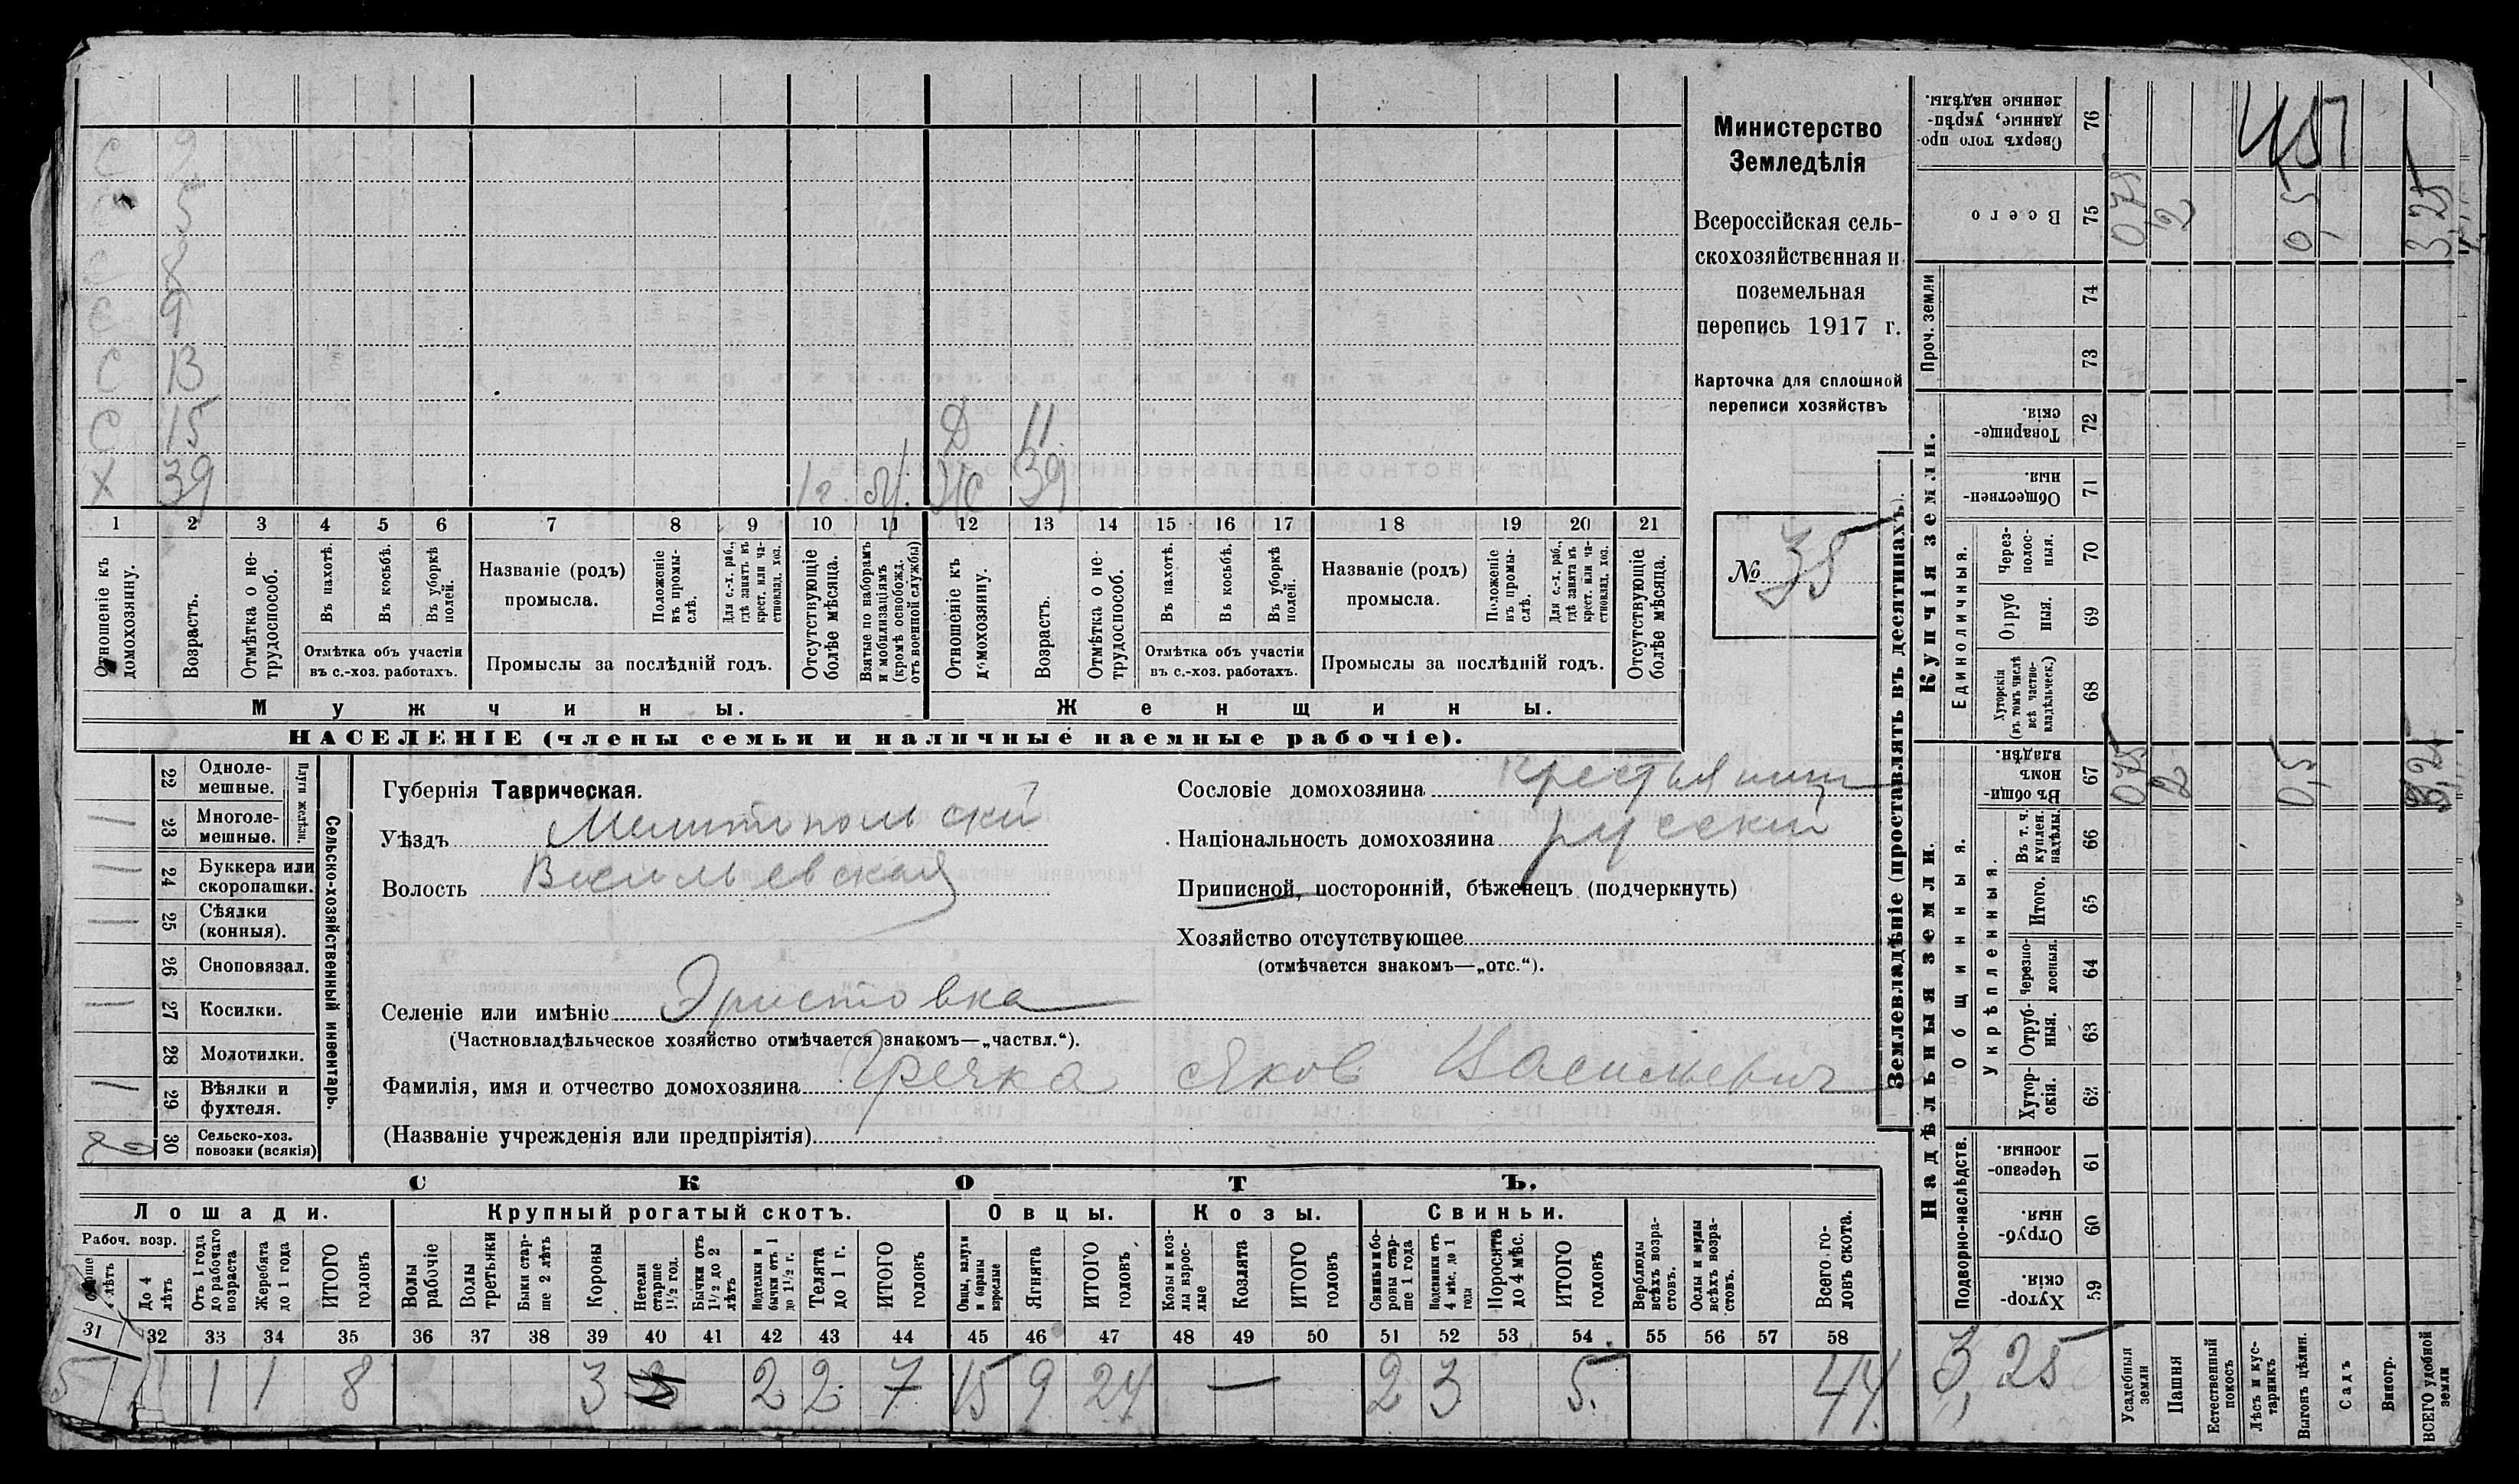 С 9
С 5
С 8
С 9
С 13
С 15 Д 11
Х 39 1 г. М. Ж 39
1 2 3 4 5 6 7 8 9 10 11 12 13 14 15 16 17 18 19 20 21
Отношеніе къ домохозяину.
Возрастъ.
Отмѣтка о нетрудоспособ.
Въ пахотѣ.
Въ косьбѣ.
Въ уборкѣ полей.
Отмѣтка объ участіи
въ с.-хоз. работахъ.
Названіе (родъ)
промысла.
Положеніе въ промыслѣ.
Для с.-х. раб., гдѣ занятъ въ крест. или частновлад. хоз.
Промыслы за послѣдній годъ.
Отсутствующіе болѣе мѣсяца.
Взятые по наборамъ и мобилизаціямъ (кромѣ освобожд. отъ военной службы)
Отношеніе къ домохозяину.
Возрастъ.
Отмѣтка о нетрудоспособ.
Въ пахотѣ.
Въ косьбѣ.
Въ уборкѣ полей.
Отмѣтка объ участіи
въ с.-хоз. работахъ.
Названіе (родъ)
промысла.
Положеніе въ промыслѣ.
Для с.-х. раб., гдѣ занята въ крест. или частновлад. хоз.
Промыслы за послѣдній годъ.
Отсутствующіе болѣе мѣсяца.
Мужчины. Женщины.
НАСЕЛЕНІЕ (члены семьи и наличные наемные рабочіе).
Министерство
Земледѣлія
Всероссійская сель-
скохозяйственная и
поземельная
перепись 1917 г.
Карточка для сплошной
переписи хозяйствъ
№ 38
Сельско-хозяйственный инвентарь.
Плуги желѣзн.
22 Одноле-
мешные.
23 Многоле-
мешные.
24 Буккера или
скоропашки.
25 Сѣялки
(конныя).
26 Сноповязал.
27 Косилки.
28 Молотилки.
29 Вѣялки и
фухтеля.
30 Сельско-хоз.
повозки (всякія)
Губернія Таврическая.
Уѣздъ Мелитопольский
Волость Васильевская
Селеніе или имѣніе Эристовка
(Частновладѣльческое хозяйство отмѣчается знакомъ—„частвл.“).
Фамилія, имя и отчество домохозяина Гречка Яков
(Названіе учрежденія или предпріятія)
Сословіе домохозяина Крестьянин
Національность домохозяина русский
Приписной, посторонній, бѣженецъ (подчеркнуть)
Хозяйство отсутствующее
(отмѣчается знакомъ—„отс.“).
СКОТЪ.
Лошади. Крупный рогатый скотъ. Овцы. Козы. Свиньи.
Рабоч. возр.
До 4 лѣтъ
Отъ 1 года до рабочаго возраста
Жеребята до 1 года
ИТОГО головъ
Волы рабочіе
Волы третьяки
Быки старше 2 лѣтъ
Коровы
Нетели старше 1½ год.
Бычки отъ 1½ до 2 лѣтъ
Подтелки и бычки отъ 1 до 1½ г.
Телята до 1 г.
ИТОГО головъ
Овцы, валухи и бараны взрослые
Ягнята
ИТОГО головъ
Козы и козлы взрослые
Козлята
ИТОГО головъ
Свиньи и боровы старше 1 года
Подсвинки отъ 4 мѣс. до 1 года
Поросята до 4 мѣс.
ИТОГО головъ
Верблюды всѣхъ возрастовъ.
Ослы и мулы всѣхъ возрастовъ.
Всего головъ скота.
31 32 33 34 35 36 37 38 39 40 41 42 43 44 45 46 47 48 49 50 51 52 53 54 55 56 57 58
5 1 1 1 8 3 2 2 7 15 9 24 — 2 3 5. 44.
Землевладѣніе (проставлять въ десятинахъ).
Купчія земли.
Надѣльныя земли.
76 Сверхъ того проданные, укрѣпленные надѣлы.
451
75 Всего 0,75 2 0,5 3,25
Проч. земли
74
73
72 Товарищескія.
71 Общественныя
Единоличныя.
70 Черезполосныя.
69 Отрубныя.
68 Хуторскія (въ томъ числѣ всѣ частновладѣльческ.)
Общинныя.
67 Въ общинномъ владѣн. 0,75 2 0,5 3,25
Укрѣпленныя.
66 Въ т. ч. куплен. надѣлы.
65 Итого.
64 Черезполосныя.
63 Отрубныя.
62 Хуторскія.
Подворно-наслѣдств.
61 Черезполосныя.
60 Отрубныя.
59 Хуторскія.
3,25
Усадебныя земли
Пашня
Естественный покосъ
Лѣсъ и кустарникъ
Выгонъ цѣлин.
Садъ
Виногр.
ВСЕГО удобной земли